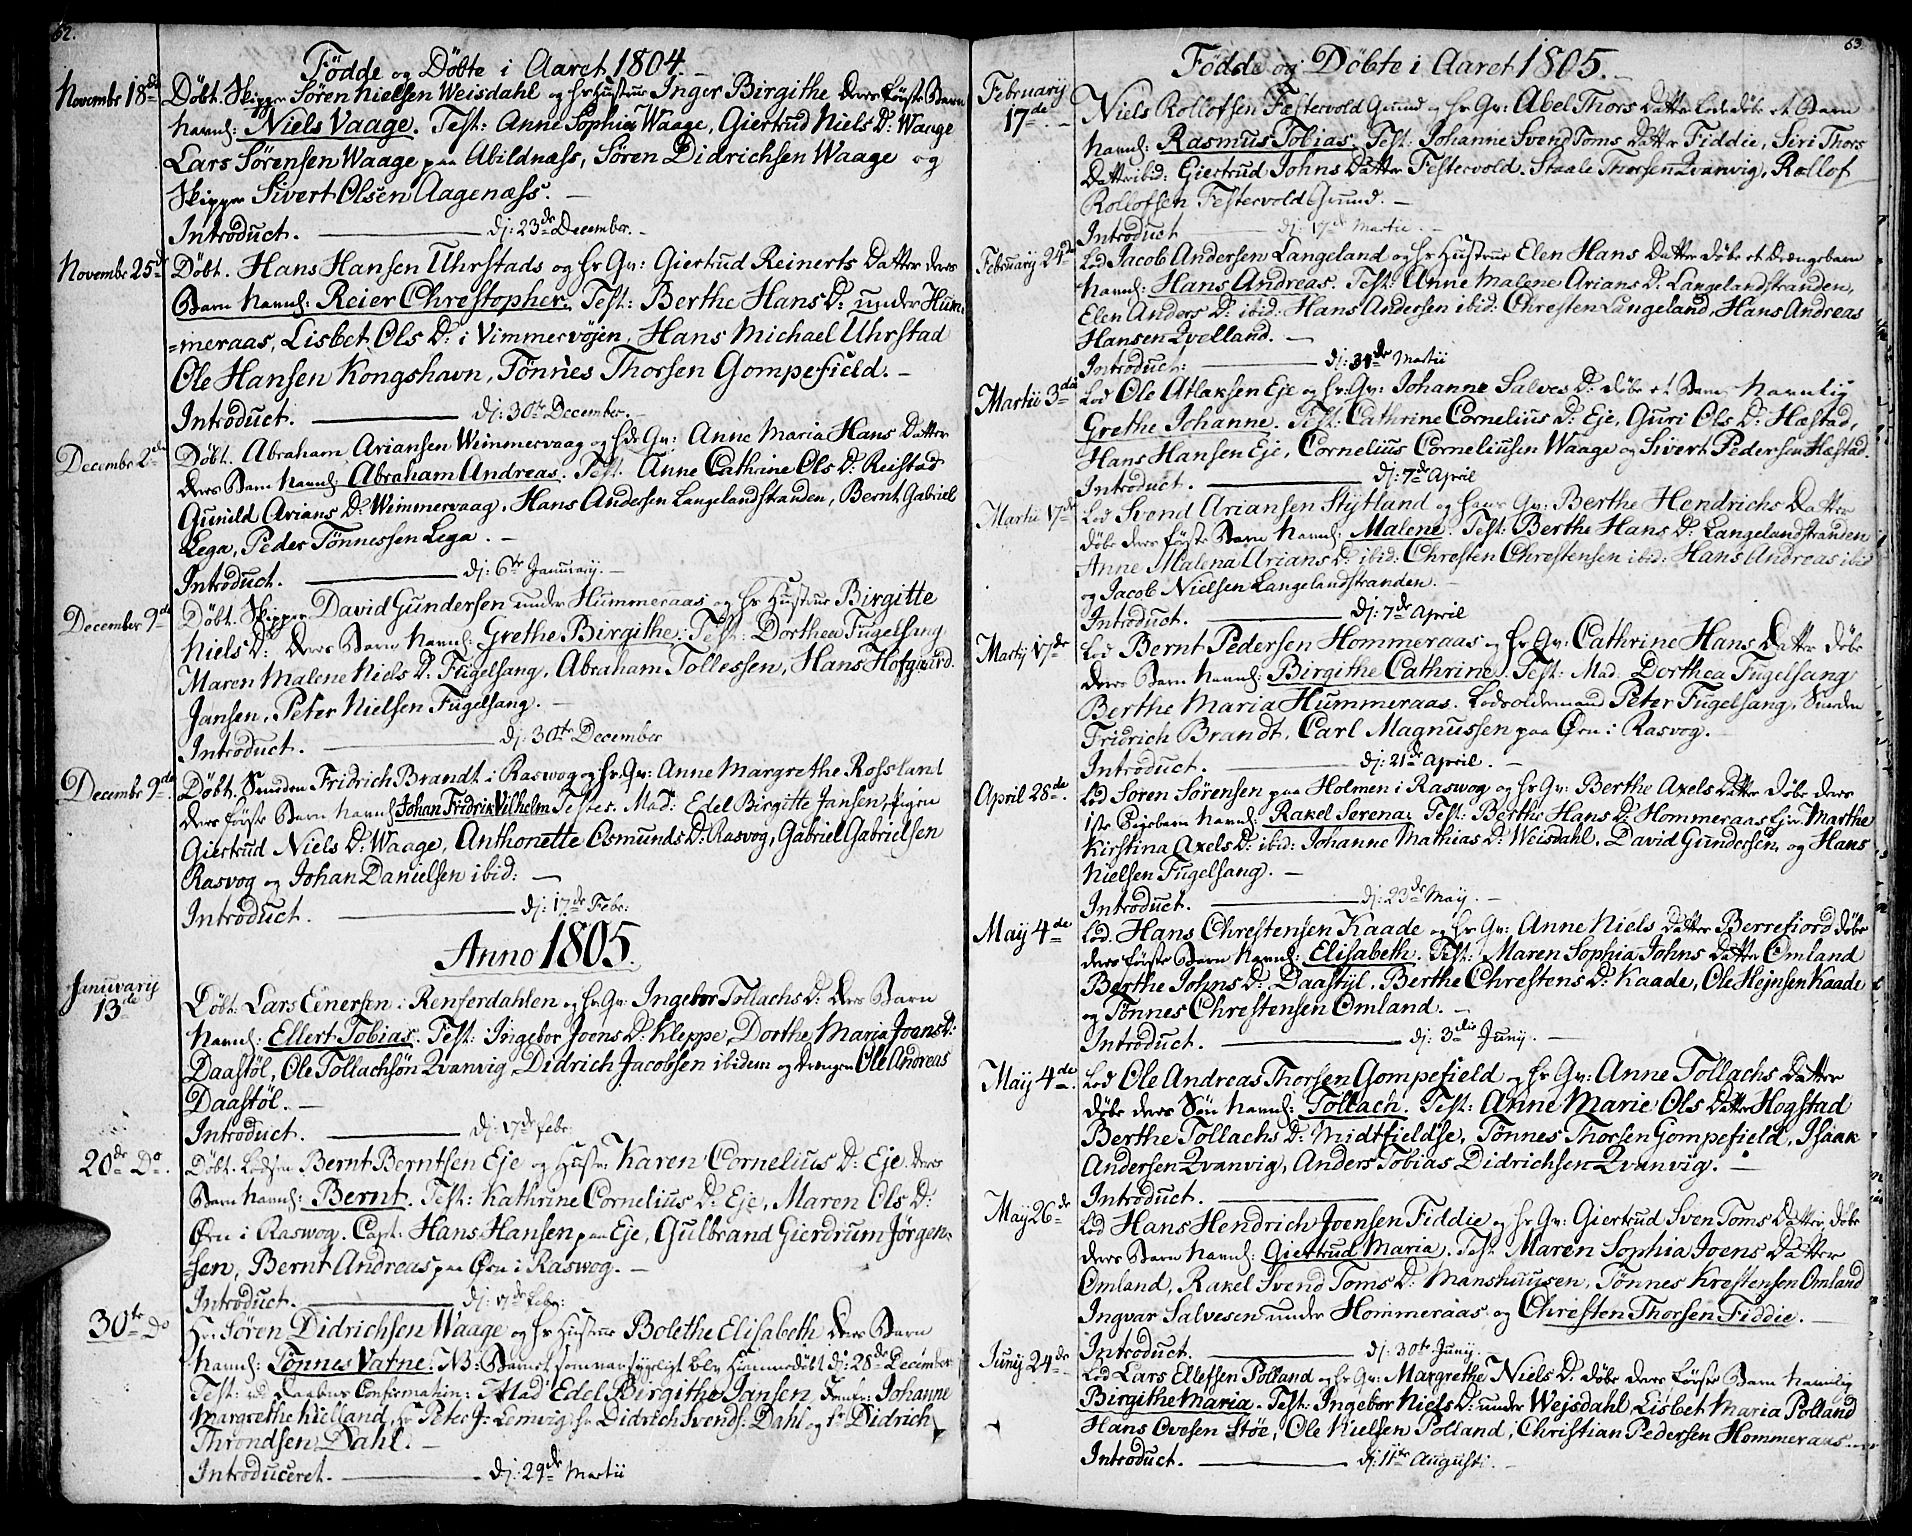 62.
Födde og Döbte i Aaret 1804.
Novembr 18de Döbt. Skipper Sören Nielsen Weisdahl og hs Hustrue Inger Birgithe deres förste Barn
navnl: Niels Vaage. Test: Anne Sophia Waage, Giertrud Niels D: Waage
Lars Sörensen Waage paa Abildnæss, Sören Didrichsen Waage og
Skipper Sivert Olsen Aagenæss.
Introduct. d: 23de December.
Novembr 25de Döbt. Hans Hansen Uhrstads og hs Qv: Giertrud Reinerts Datter deres
Barn navnl: Reier Chrestopher. Test: Berthe Hans D: under Hum
=meraas, Lisbet Ols D: i Vimmervöjen, Hans Michael Uhrstad
Ole Hansen Kongshavn, Tönnes Thorsen Gompefield.
Introduct. d: 30te December.
December 2den Döbt. Abraham Ariansen Wimmervaag og hs Qv: Anne Maria Hans Datter
deres Barn navnl: Abraham Andreas. Test: Anne Cathrine Ols D: Reistad
Gunild Arians D: Wimmervaag, Hans Andersen Langelandstranden, Bernt Gabriel
Lega, Peder Tönnessen Lega.
Introduct. d: 6te Januvarij.
December 9de Döbt. Skipper David Gundersen under Hummeraas og hs Hustrue Birgitte
Niels D: deres Barn navnl: Grethe Birgithe. Test: Dorthea Fugelsang
Maren Malene Niels D: Fugelsang, Abraham Tollessen, Hans Hofgaard
Jansen, Peter Nielsen Fugelsang.
Introduct. d: 30te December
Decembr 9de Döbt. Smeden Fridrich Brandt i Raswog og hs Qv: Anne Margrethe Rossland
deres förste Barn navnl: Johan Fridrik Vilhelm Testes. Mad: Edel Birgitte Jansen, Pigen
Giertrud Niels D: Waage, Anthonette Osmunds D: Rasvog, Gabriel Gabrielsen
Rasvog og Johan Danielsen ibid:
Introduct. d: 17de Febr:
Anno 1805.
Januvarij 13de Döbt: Lars Einersen i Renferdahlen og hs Qv: Ingebor Tollachs D: deres Barn
navnl: Ellert Tobias. Test: Ingebor Joens D: Kleppe, Dorthe Maria Joens D:
Daastöl, Ole Tollachsön Qvanvig, Didrich Jacobsen ibidem og drengen Ole Andreas
Daastöl.
Introduct. d: 17de febr.
20de Do. Döbt. Lodsen Bernt Berntsen Eje og Hustr: Karen Cornelius D: Eje deres
Barn navnl: Bernt. Test: Kathrine Cornelius D: Eje, Maren Ols D:
Örn i Raswog. Capt: Hans Hansen paa Eje, Gulbrand Gierdrum Jörgen
sen, Bernt Andreas paa Örn i Raswog.
Introduct. d: 17de febr:
30te Do Hr: Sören Didrichsen Waage og hs Hustrue Bolethe Elisabeth deres Barn
navnl: Tönnes Vatne. NB: Barnet som var sygeligt blev hiemmedöbt d: 28de December
Test: ved Daabens Confirmation: Mad Edel Birgithe Jansen, Jomfr: Johanne
Margrethe Kielland, hr Peter J: Lemvig, hr Didrich Svends: Dahl og hr Didrich
Throndsen Dahl.
Introduceret. d: 29de Martii
63
Födde og Döbte i Aaret 1805.
February 17de Niels Rollofsen Festervold Gruud og hs Qv: Abel Thors Datter lod döbe et Barn
navnl: Rasmus Tobias. Test: Johanne Svend Toms Datter Fiddie, Siri Thors
Datter ibid: Giertrud Johns Datter Festervold. Staale Thorsen Qvanvig, Rollof
Rollofsen Festervold Gruud.
Introduct d: 17de Martii.
Februarij 24de Lod Jacob Andersen Langeland og hs Hustrue Elen Hans Datter döbe et drengebarn
navnl: Hans Andreas. Test: Anne Malene Arians D: Langelandstranden,
Elen Anders D: ibid: Hans Andersen ibid: Chresten Langeland, Hans Andreas
Hansen Qvelland.
Introduct: d: 31de Martii
Martii 3die Lod Ole Atlaksen Eje og hs Qv: Johanne Salves D: döbe et Barn navnlig
Grethe Johanne. Test: Cathrine Cornelius D: Eje, Guri Ols D: Hæstad,
Hans Hansen Eje, Cornelius Corneliusen Waage og Sivert Pedersen Hæstad.
Introduct. d: 7de April
Martii 17de Lod Svend Ariansen Stÿtland og hans Qv: Berthe Hendrichs Datter
döbe deres förste Barn navnl: Malene. Test: Berthe Hans D: Langelandstranden
Anne Malena Arians D: ibid: Chresten Chrestensen ibid: Hans Andreas ibid
og Jacob Nielsen Langelandstranden.
Introduct. d: 7de April
Martij 17de Lod Bernt Pedersen Hommeraas og hs Qv: Cathrine Hans Datter döbe
deres Barn navnl: Birgithe Cathrine. Test: Mad. Dorthea Fugelsang
Berthe Maria Hummeraas. Lodsoldermand Peter Fugelsang, Smeden
Fridrich Brandt, Carl Magnussen paa Örn i Rasvog.
Introduct. d: 21de April.
April 28de. Lod Sören Sörensen paa Holmen i Raswog og hs Qv: Berthe Axels Datter döbe deres
1ste Pigebarn navnl: Rakel Serena. Test: Berthe Hans D: Hommeraas Qv: Marthe
Kirstina Axels D: ibid: Johanne Mathias D: Weisdahl. David Gundersen, og Hans
Nielsen Fugelsang.
Introduct. d: 23de Maij.
Maÿ 4de Lod. Hans Chrestensen Kaade og hs Qv: Anne Niels Datter Berrefiord döbe
deres förste Barn navnl: Elisabeth. Test: Maren Sophia Johns Datter Omland
Berthe Johns D: Daastÿl. Berthe Chrestens D: Kaade, Ole Hejnsen Kaade
og Tönnes Chrestensen Omland.
Introduct. d: 3die Junij.
Maÿ 4de. Lod Ole Andreas Thorsen Gompefield og hs Qv: Anne Tollachs Datter
döbe deres Sön navnl: Tollach. Test: Anne Marie Ols Datter Hogstad
Berthe Tollachs D: Midtfieldse, Tönnes Thorsen Gompefield, Isaak
Andersen Qvanvig, Anders Tobias Didrichsen Qvanvig.
Introduct.
Maÿ 26de Lod Hans Hendrich Joensen Fiddie og hs Qv: Giertrud Sven Toms Datter, döbe
deres Barn navnl: Giertrud Maria. Test: Maren Sophia Joens Datter
Omland, Rakel Svend Toms D: Manshuusen, Tönnes Krestensen Omland
Ingvar Salvesen under Hommeraas og Chresten Thorsen Fiddie.
Introduct. d: 30te Junij.
Junij 24de Lod Lars Ellefsen Polland og hs Qv: Margrethe Niels D: döbe deres förste Barn navnlig
Birgithe Maria. Test: Ingebor Niels D: under Wejsdahl, Lisbet Maria Polland
Hans Ovesen Stöe, Ole Nielsen Polland, Christian Pedersen Hommeraas
Introduct. d: 11te Augusti.